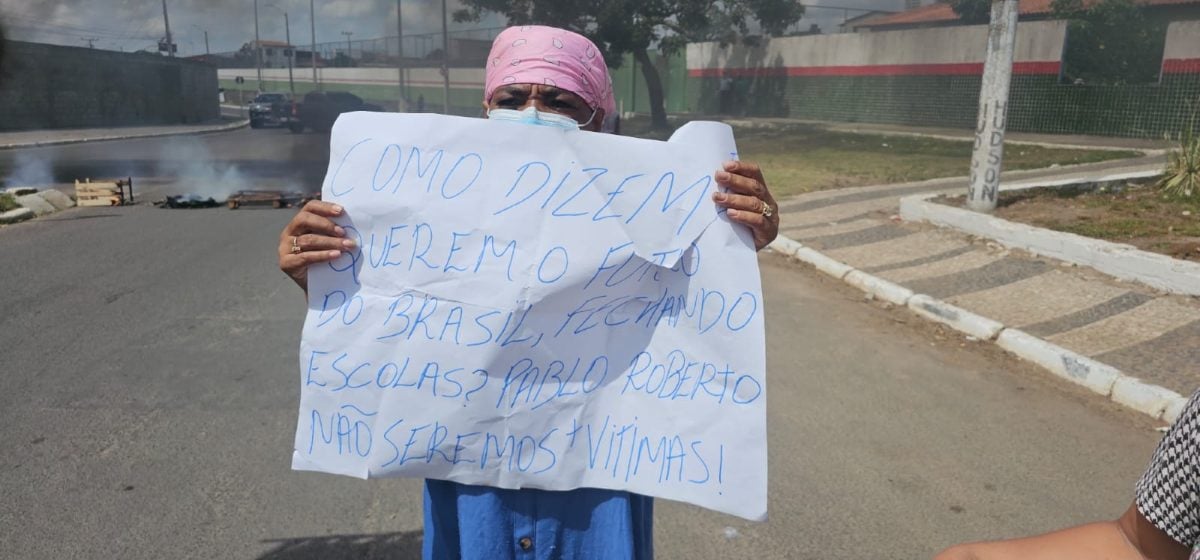 COMO DIZEM
QUEREM O
DO BRASIL, FECHANDO
ESCOLAS? PABLO ROBERTO
NÃO SEREMOS + VITIMAS!
HUDSON